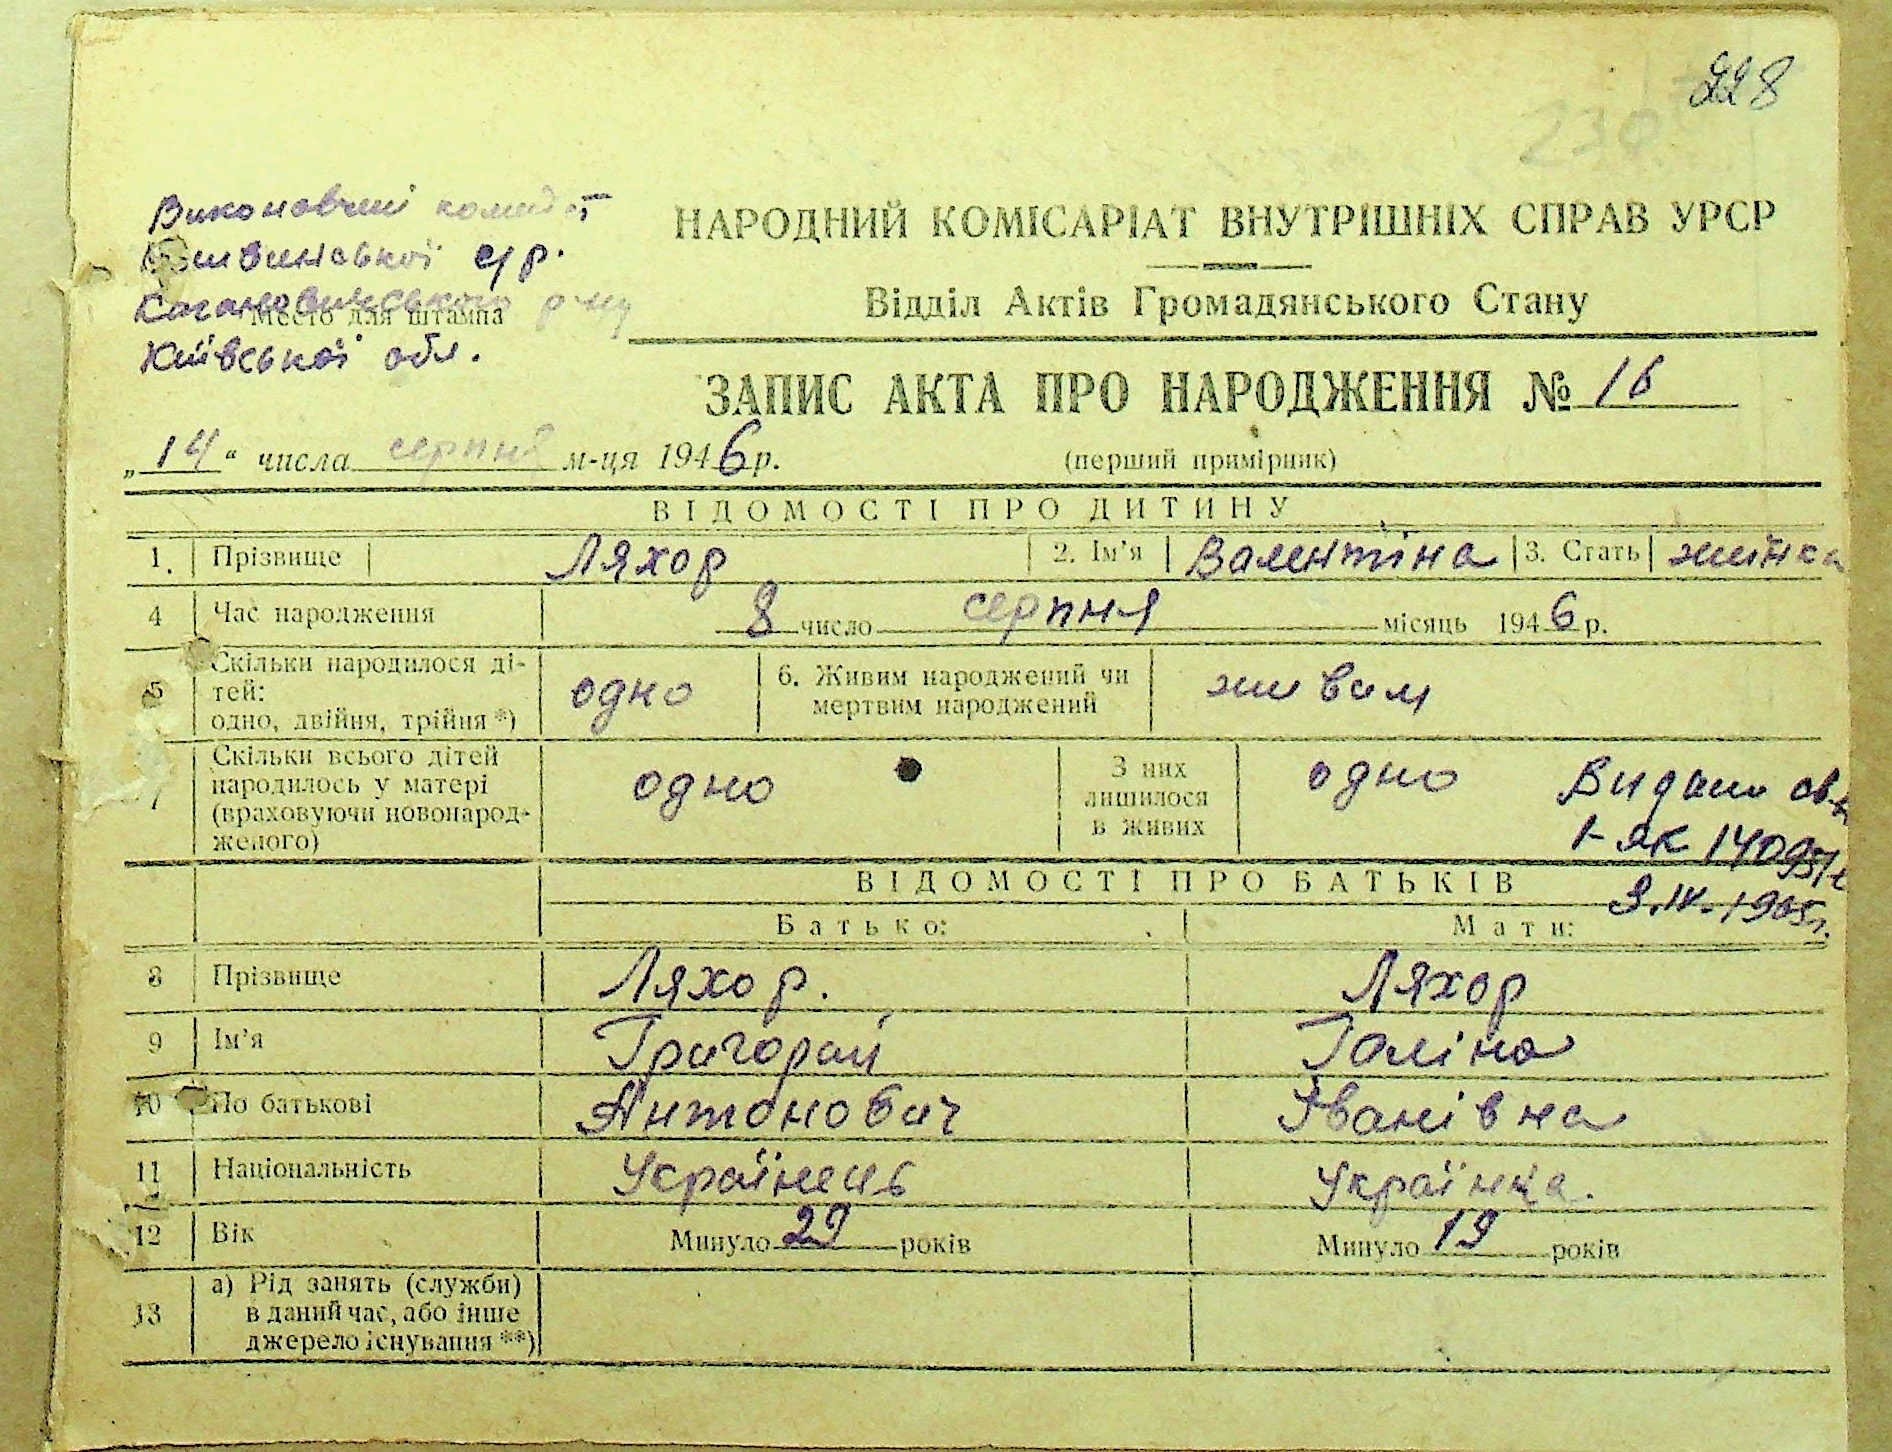 228
230
Виконавчий комітет
с/р.
Кагановичського р-ну
Место для штампа
Київської обл.
НАРОДНИЙ КОМІСАРІАТ ВНУТРІШНІХ СПРАВ УРСР
Відділ Актів Громадянського Стану
ЗАПИС АКТА ПРО НАРОДЖЕННЯ № 16
„14“ числа серпня м-ця 1946 р. (перший примірник)
ВІДОМОСТІ ПРО ДИТИНУ
1. Прізвище Ляхор 2. Ім’я Валентіна 3. Стать жінка
4 Час народження 8 число серпня місяць 1946 р.
5 Скільки народилося ді-
тей:
одно, двійня, трійня *) одно 6. Живим народжений чи
мертвим народжений живим
7 Скільки всього дітей
народилось у матері
(враховуючи новонарод-
женого) одно З них
лишилося
в живих одно
Видано св-во
І-ЯК
9.IV.-1965г.
ВІДОМОСТІ ПРО БАТЬКІВ
Батько: Мати:
8 Прізвище Ляхор. Ляхор
9 Ім’я Григорий Галіна
10 По батькові Антонович Іванівна
11 Національність Українець Українка.
12 Вік Минуло 29 років Минуло 19 років
13 а) Рід занять (служби)
в даний час, або інше
джерело існування **)